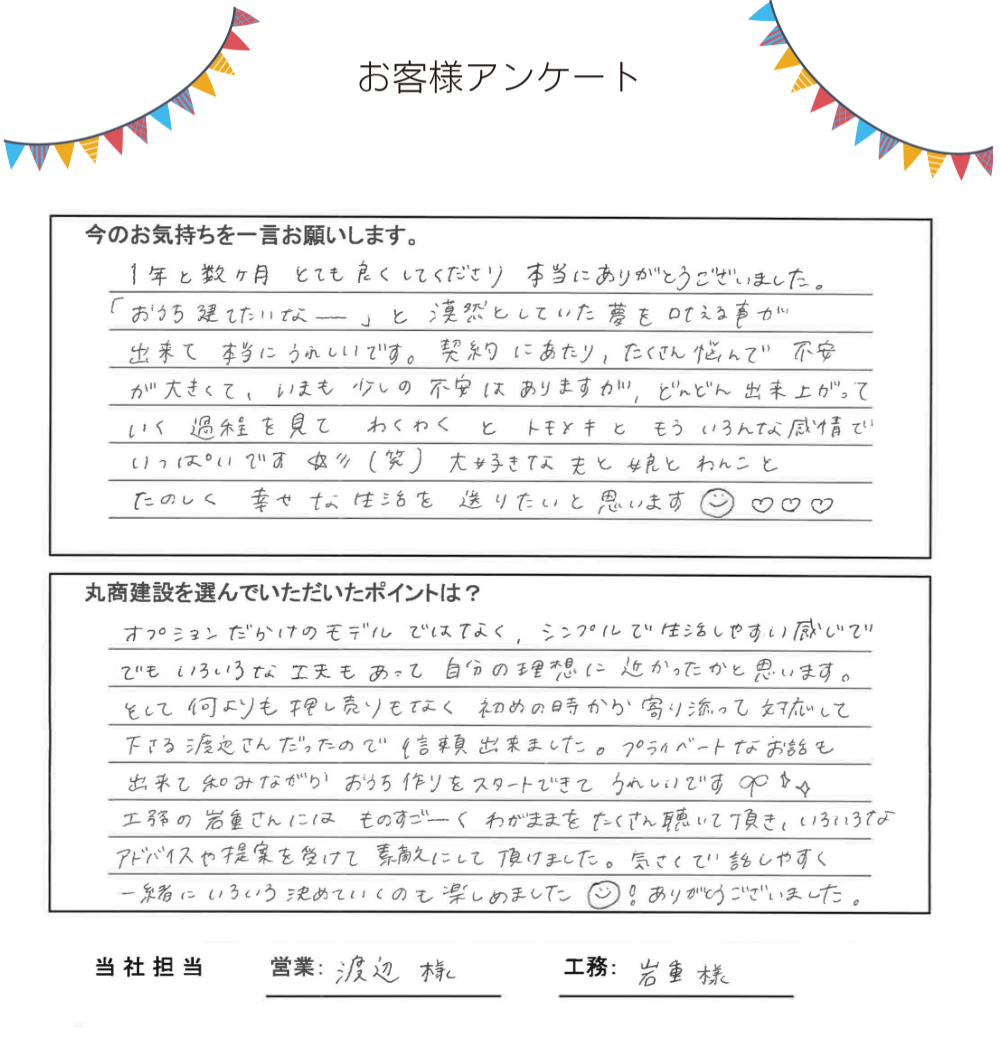 お客様アンケート
今のお気持ちを一言お願いします。
1年と数ヶ月 とても良くしてくださり 本当にありがとうございました。
「おうち建てたいなー」と漠然としていた夢を叶える事が
出来て本当にうれしいです。契約にあたり、たくさん悩んで 不安
が大きくて、いまも少しの不安はありますが、どんどん出来上がって
いく過程を見て わくわくとドキドキと もういろんな感情で
いっぱいです (笑) 大好きな夫と娘とわんこと
たのしく 幸せな生活を送りたいと思います ♡♡♡
丸商建設を選んでいただいたポイントは？
オプションだらけのモデルではなく、シンプルで生活しやすい感じで
でもいろいろな工夫もあって自分の理想に近かったかと思います。
そして何よりも押し売りもなく 初めの時から寄り添って対応して
下さる渡辺さんだったので信頼出来ました。プライベートなお話も
出来て和みながら おうち作りをスタートできて うれしいです
工務の岩重さんには ものすごーくわがままをたくさん聴いて頂き、いろいろな
アドバイスや提案を受けて素敵にして頂けました。気さくで話しやすく
一緒にいろいろ決めていくのも楽しめました！ありがとうございました。
当社担当 営業：渡辺 様 工務：岩重様